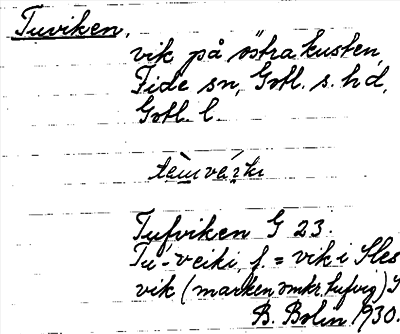 Tuviken,
vik på östra kusten,
Fide sn, Gotl. s. hd,
Gotl. l.
Tufviken G 23.
Tu-veiki f. = vik i Sles
vik (marken omkr. Tufvig)
B. Bolin 1930.